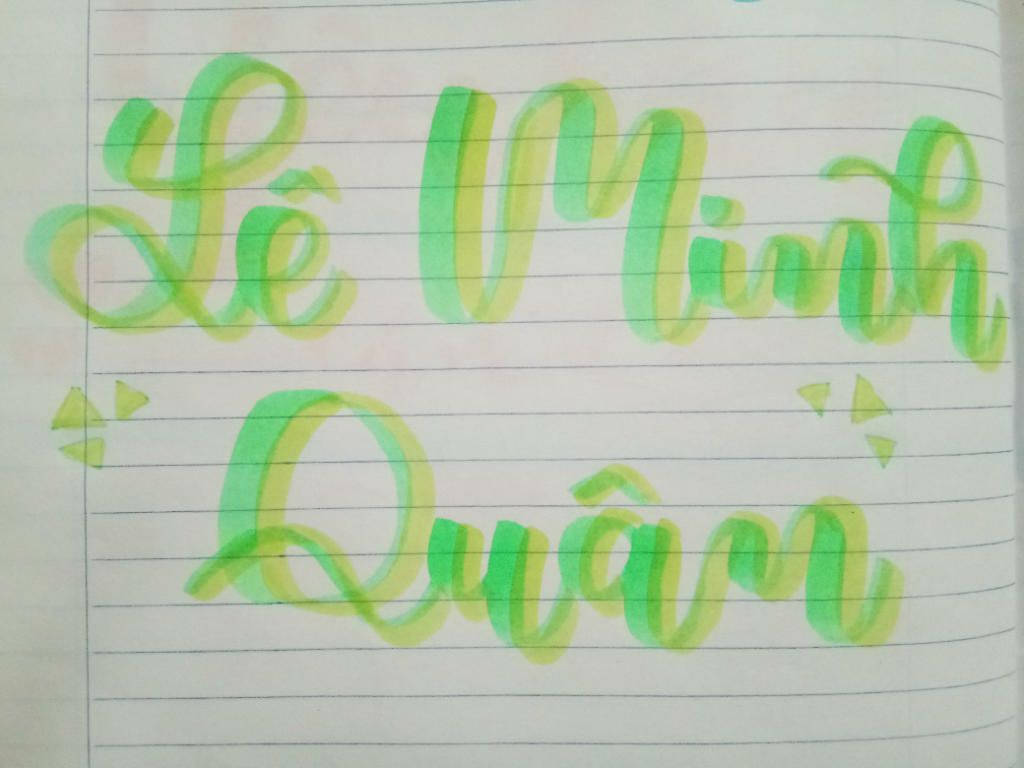 Lê Minh
Quân